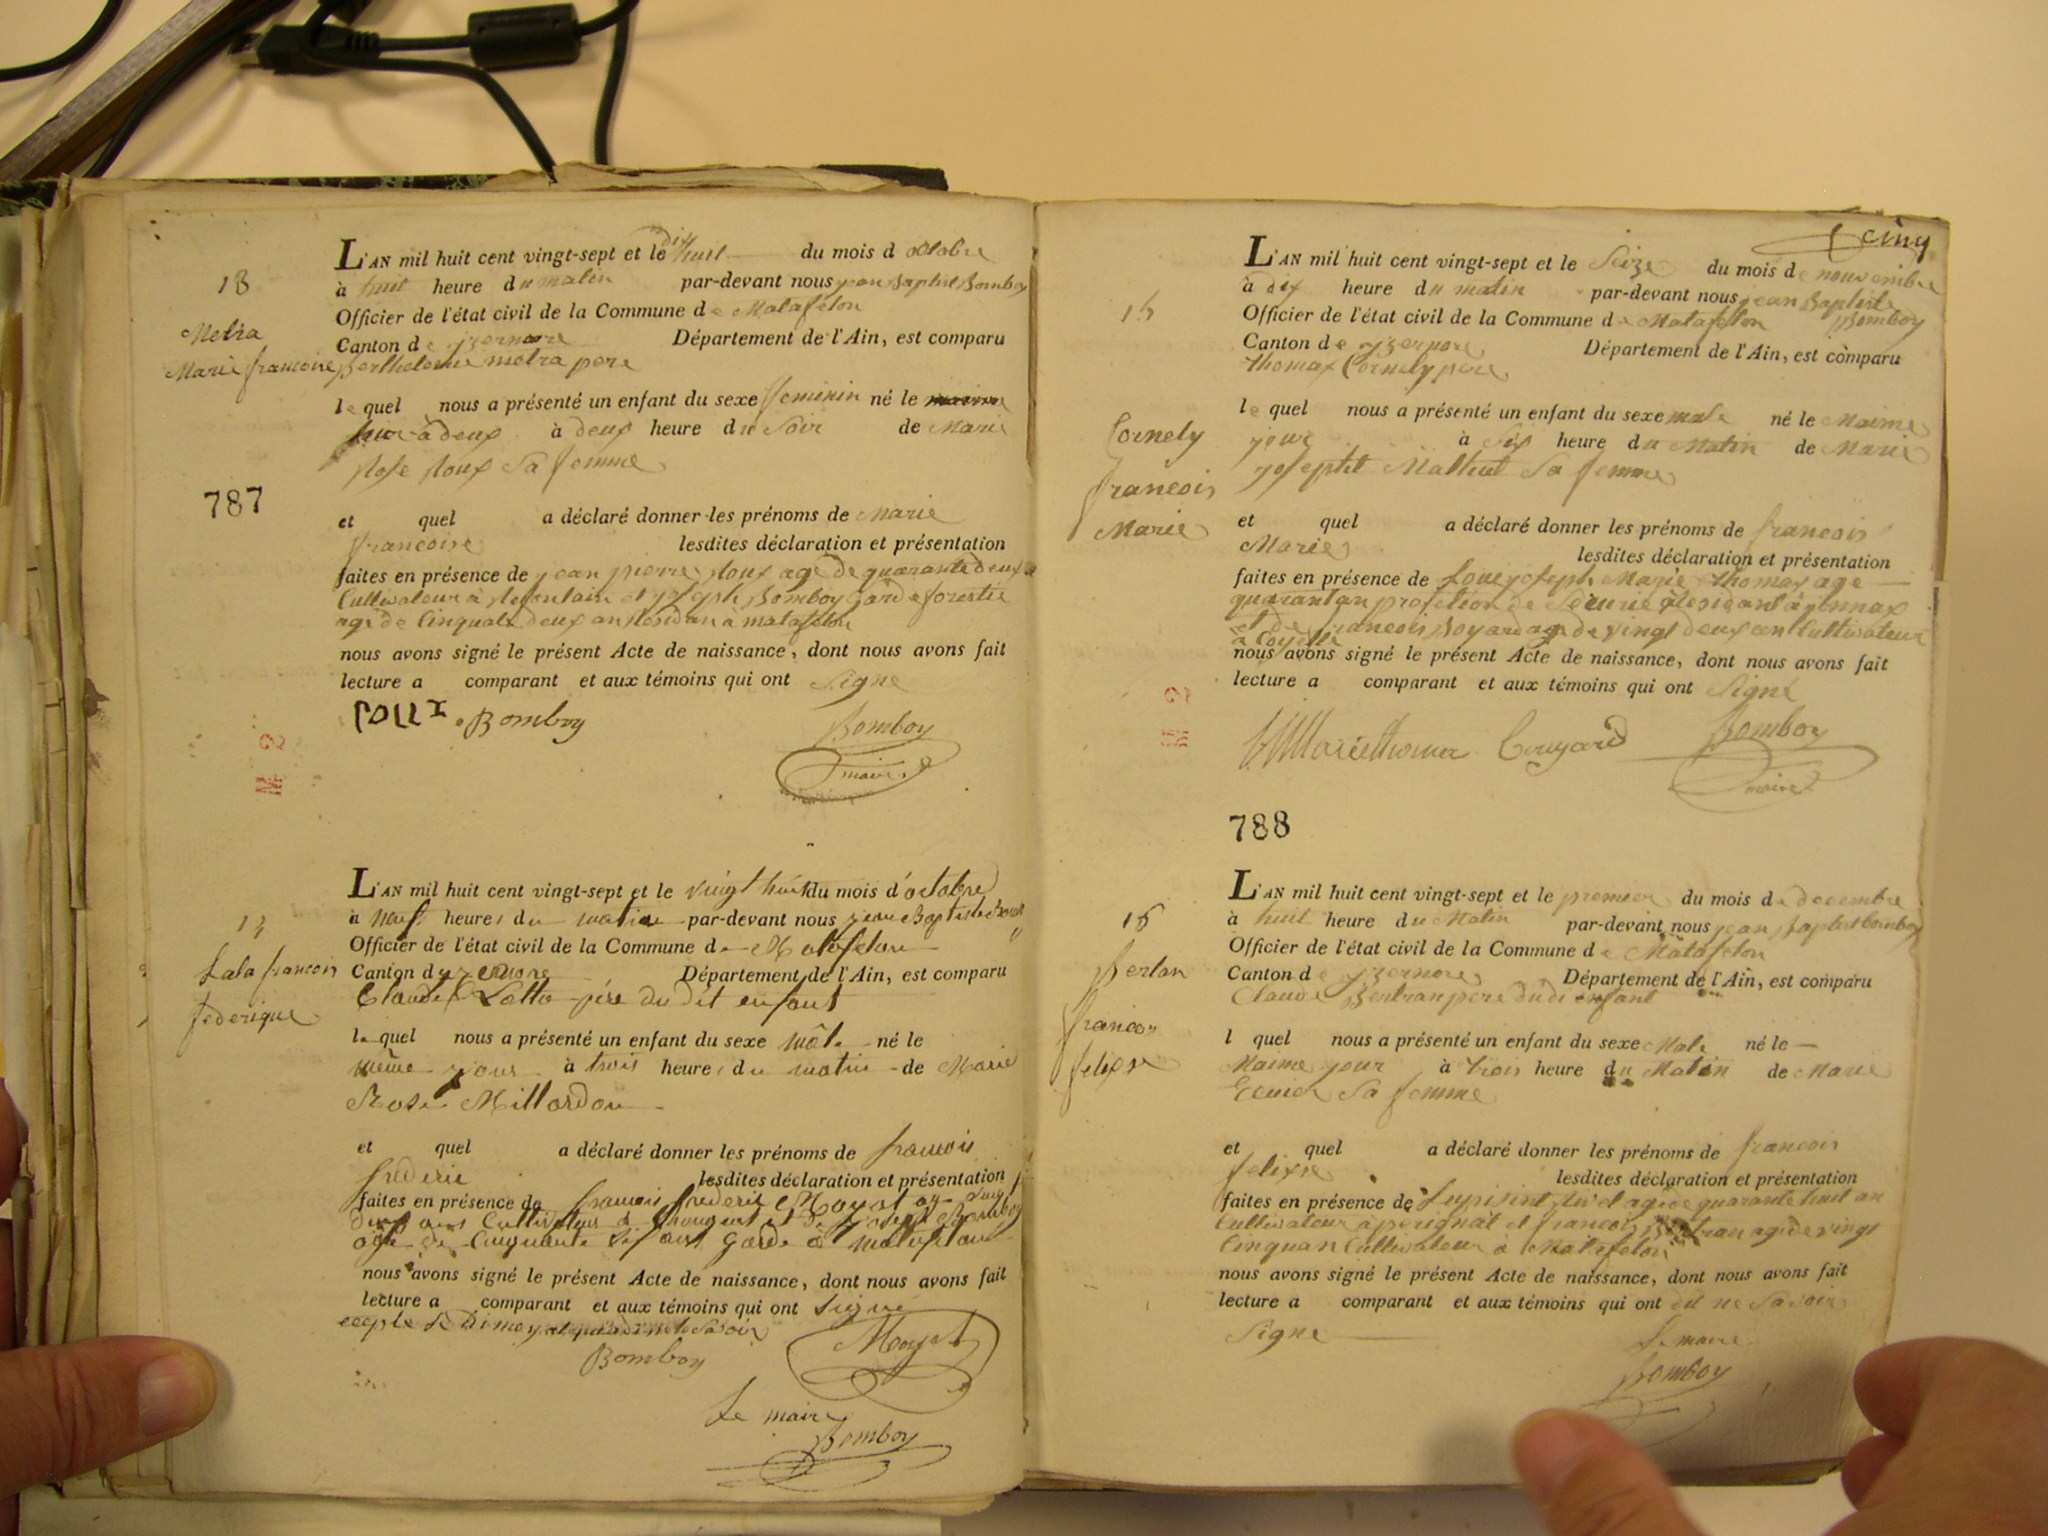 18
Metra
Marie francoise
787
L'AN mil huit cent vingt-sept et le dix huit du mois d octobre
à huit heure du matin par-devant nous jean Baptist Bomboy
Officier de l'état civil de la Commune de Matafelon
Canton de yzernore Département de l'Ain, est comparu
Berthelemie metra pere
le quel nous a présenté un enfant du sexe feminin né le
à deux à deux heure du Soir de Marie
Rose Roux Sa femme
et quel a déclaré donner les prénoms de Marie
francoise lesdites déclaration et présentation
faites en présence de jean pierre Roux age de quarante deux
Cultivateur à et joseph Bomboy Garde forestie
agé de Cinquate deux an Residan a matafelon
nous avons signé le présent Acte de naissance, dont nous avons fait
lecture a comparant et aux témoins qui ont Signe
roux Bomboy Bomboy
maire
L'AN mil huit cent vingt-sept et le vingt huit du mois d'octobre
à neuf heures du matin par-devant nous jean Baptiste
Lala francois
federique
Officier de l'état civil de la Commune de Matafelon
Canton d yzernore Département de l'Ain, est comparu
Claude Latto père du dit enfant
le quel nous a présenté un enfant du sexe mâle né le
même jour à trois heures du matin de Marie
Rose Millardou
et quel a déclaré donner les prénoms de francois
frederic lesdites déclaration et présentation
faites en présence de francois frederic Moyat
deux ans Cultivateur à et de joseph Bomboy
agé de Cinquante ans Garde à matafelon
nous avons signé le présent Acte de naissance, dont nous avons fait
lecture a comparant et aux témoins qui ont Signé
Bomboy Moyat
Le maire
Bomboy
Cinq
15
Cornely
francois
Marie
L'AN mil huit cent vingt-sept et le Seize du mois de nouvembre
à dix heure du matin par-devant nous jean Baptiste
Officier de l'état civil de la Commune de Matafelon Bomboy
Canton de yzernore Département de l'Ain, est comparu
thomax Cornely pere
le quel nous a présenté un enfant du sexe male né le Maime
jour à Six heure du Matin de Marie
Sa femme
et quel a déclaré donner les prénoms de francois
Marie lesdites déclaration et présentation
faites en présence de joseph Marie thomax age
quarant an de Residant à
et de francois Boyard age de vingt deux an Cultivateur
a Coyselle
nous avons signé le présent Acte de naissance, dont nous avons fait
lecture a comparant et aux témoins qui ont Signé
Bomboy
maire
788
16
Bertan
francois
felixe
L'AN mil huit cent vingt-sept et le premier du mois de decembre
à huit heure du Matin par-devant nous jean Baptist bomboy
Officier de l'état civil de la Commune de Matafelon
Canton de yzernore Département de l'Ain, est comparu
Claude Bentran pere du di enfant
l quel nous a présenté un enfant du sexe Male né le
Maime jour à trois heure du Matin de Marie
Sa femme
et quel a déclaré donner les prénoms de francois
felixe lesdites déclaration et présentation
faites en présence de agé de quarante huit an
Cultivateur a perignat et francois agé de vingt
Cinq an Cultivateur à Matafelon
nous avons signé le présent Acte de naissance, dont nous avons fait
lecture a comparant et aux témoins qui ont dit ne Savoir
Signe
Le maire
Bomboy